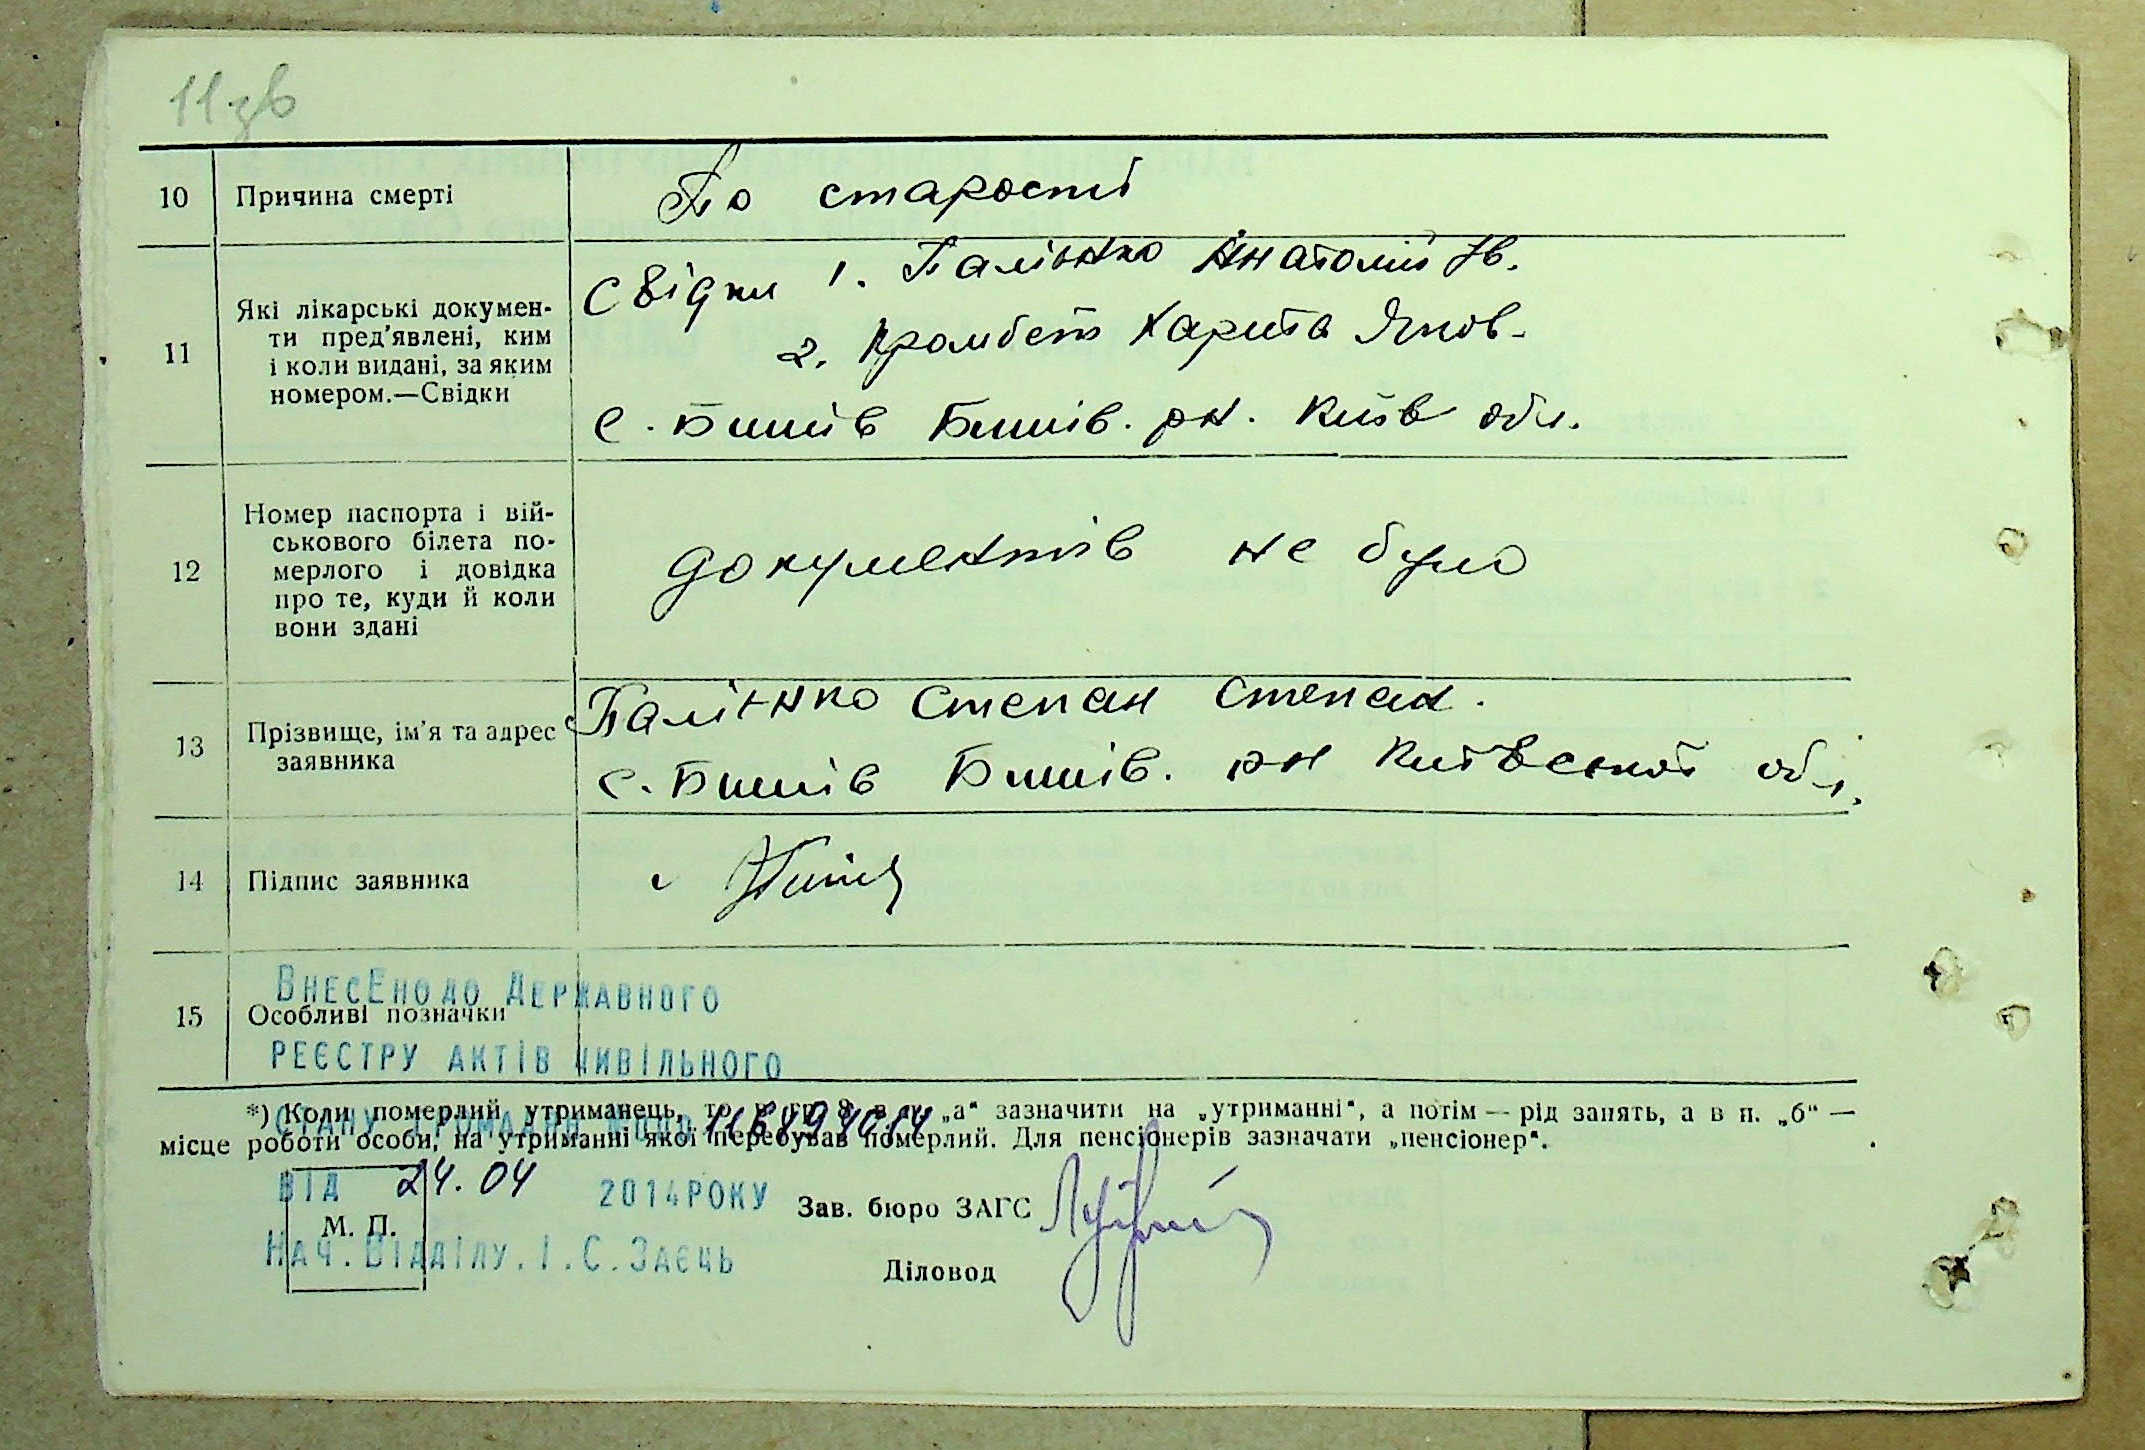 11зв
10 Причина смерті По старості
11 Які лікарські докумен-
ти пред'явлені, ким
і коли видані, за яким
номером.—Свідки
Свідки 1. Палієнко Анатолій Ів.
2. Харита Яков.
с. Бишів Бишів. рн. Київ обл.
12 Номер паспорта і вій-
ськового білета по-
мерлого і довідка
про те, куди й коли
вони здані
документів не було
13 Прізвище, ім'я та адрес
заявника
Палієнко Степан Степан.
с. Бишів Бишів. рн Київської обл.
14 Підпис заявника
15 Особливі позначки
ВНЕСЕНО ДО ДЕРЖАВНОГО
РЕЄСТРУ АКТІВ ЦИВІЛЬНОГО
СТАНУ ГРОМАДЯН
*) Коли померлий утриманець, то в гр. 8 в п. „а“ зазначити на „утриманні“, а потім — рід занять, а в п. „б“ —
місце роботи особи, на утриманні якої перебував померлий. Для пенсіонерів зазначати „пенсіонер“.
ВІД 24.04 2014 РОКУ
М. П.
Зав. бюро ЗАГС
НАЧ. ВІДДІЛУ. І. С. ЗАЄЦЬ
Діловод